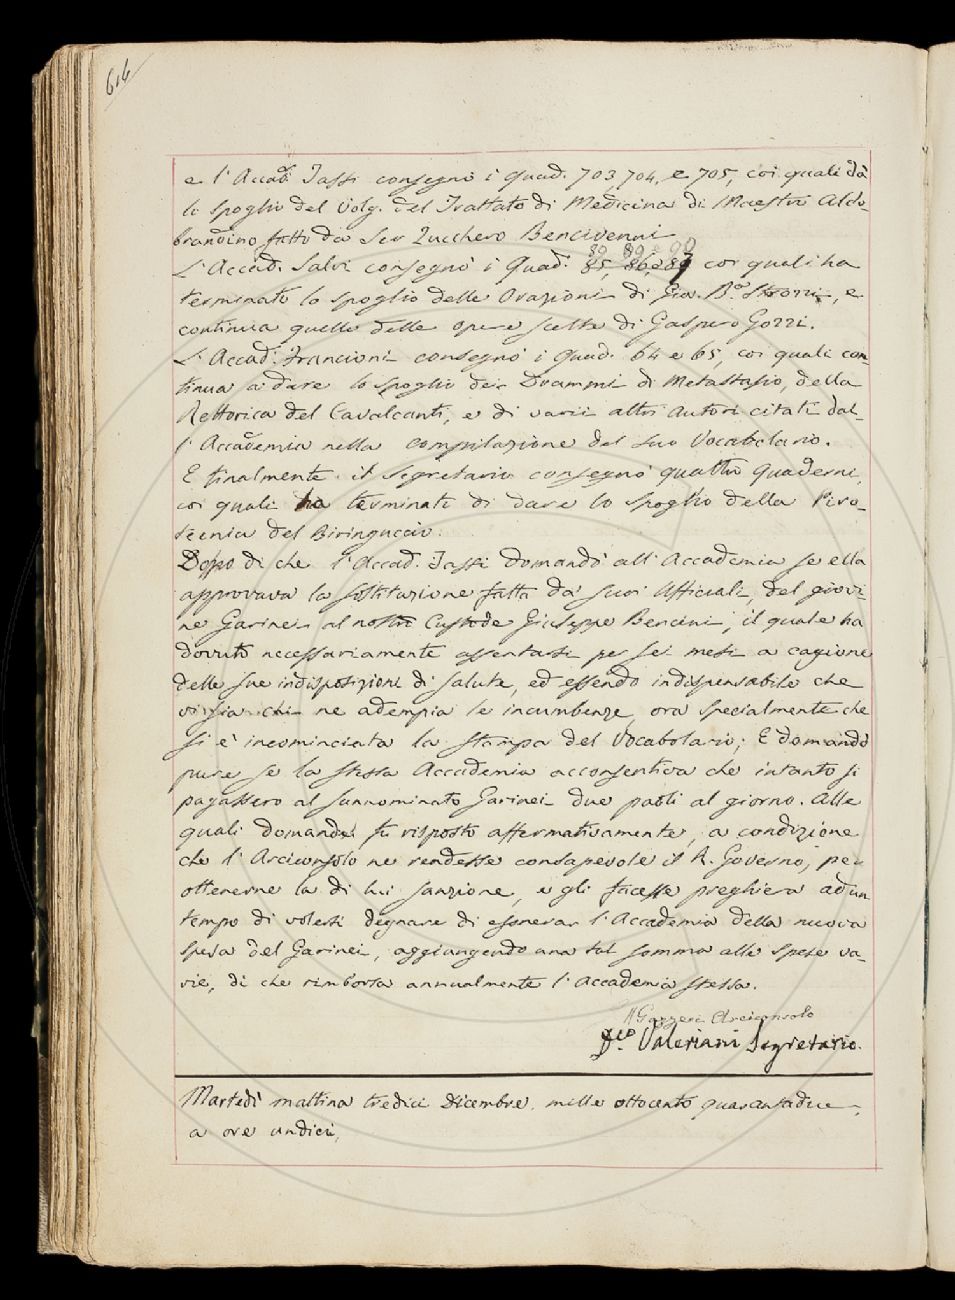 616
e l'Accad. Tassi consegnò i quad. 703, 704, e 705, coi quali dà
lo spoglio del Volg. del Trattato di Medicina di Maestro Aldo-
brandino fatto da Ser Zucchero Bencivenni
L'Accad. Salvi consegnò i Quad. 85, 86, e 87 coi quali ha
terminato lo spoglio delle Orazioni di Gio. B.a Strozzi, e
continua quello delle opere scelte di Gasparo Gozzi.
L'Accad. Francioni consegnò i quad. 64 e 65, coi quali con-
tinua a dare lo spoglio dei Drammi di Metastasio, della
Rettorica del Cavalcanti, e di varii altri Autori citati dal-
l'Accademia nella compilazione del suo Vocabolario.
E finalmente il segretario consegnò quattro quaderni,
coi quali ha terminato di dare lo spoglio della Piro-
tecnia del Biringuccio.
Dopo di che l'Accad. Tassi domandò all'Accademia se ella
approvava la sostituzione fatta da' suoi Uffiziali, del giovi-
ne Garinei al nostro Custode Giuseppe Bencini, il quale ha
dovuto necessariamente assentarsi per sei mesi a cagione
delle sue indisposizioni di salute, ed essendo indispensabile che
vi sia chi ne adempia le incumbenze, ora specialmente che
si è incominciata la stampa del Vocabolario; E domandò
pure se la stessa Accademia acconsentiva che intanto si
pagassero al sunnominato Garinei due paoli al giorno. Alle
quali domande fu risposto affermativamente, a condizione
che l'Arciconsolo ne rendesse consapevole il R. Governo, per
ottenerne la di lui sanzione, e gli facesse preghiera ad un
tempo di volersi degnare di esonerar l'Accademia della nuova
spesa del Garinei, aggiungendo una tal somma alle spese va-
rie, di che rimborsa annualmente l'Accademia stessa.
Gazzeri Arciconsolo
Valeriani Segretario.
Martedì mattina tredici Dicembre mille ottocento quarantadue,
a ore undici,